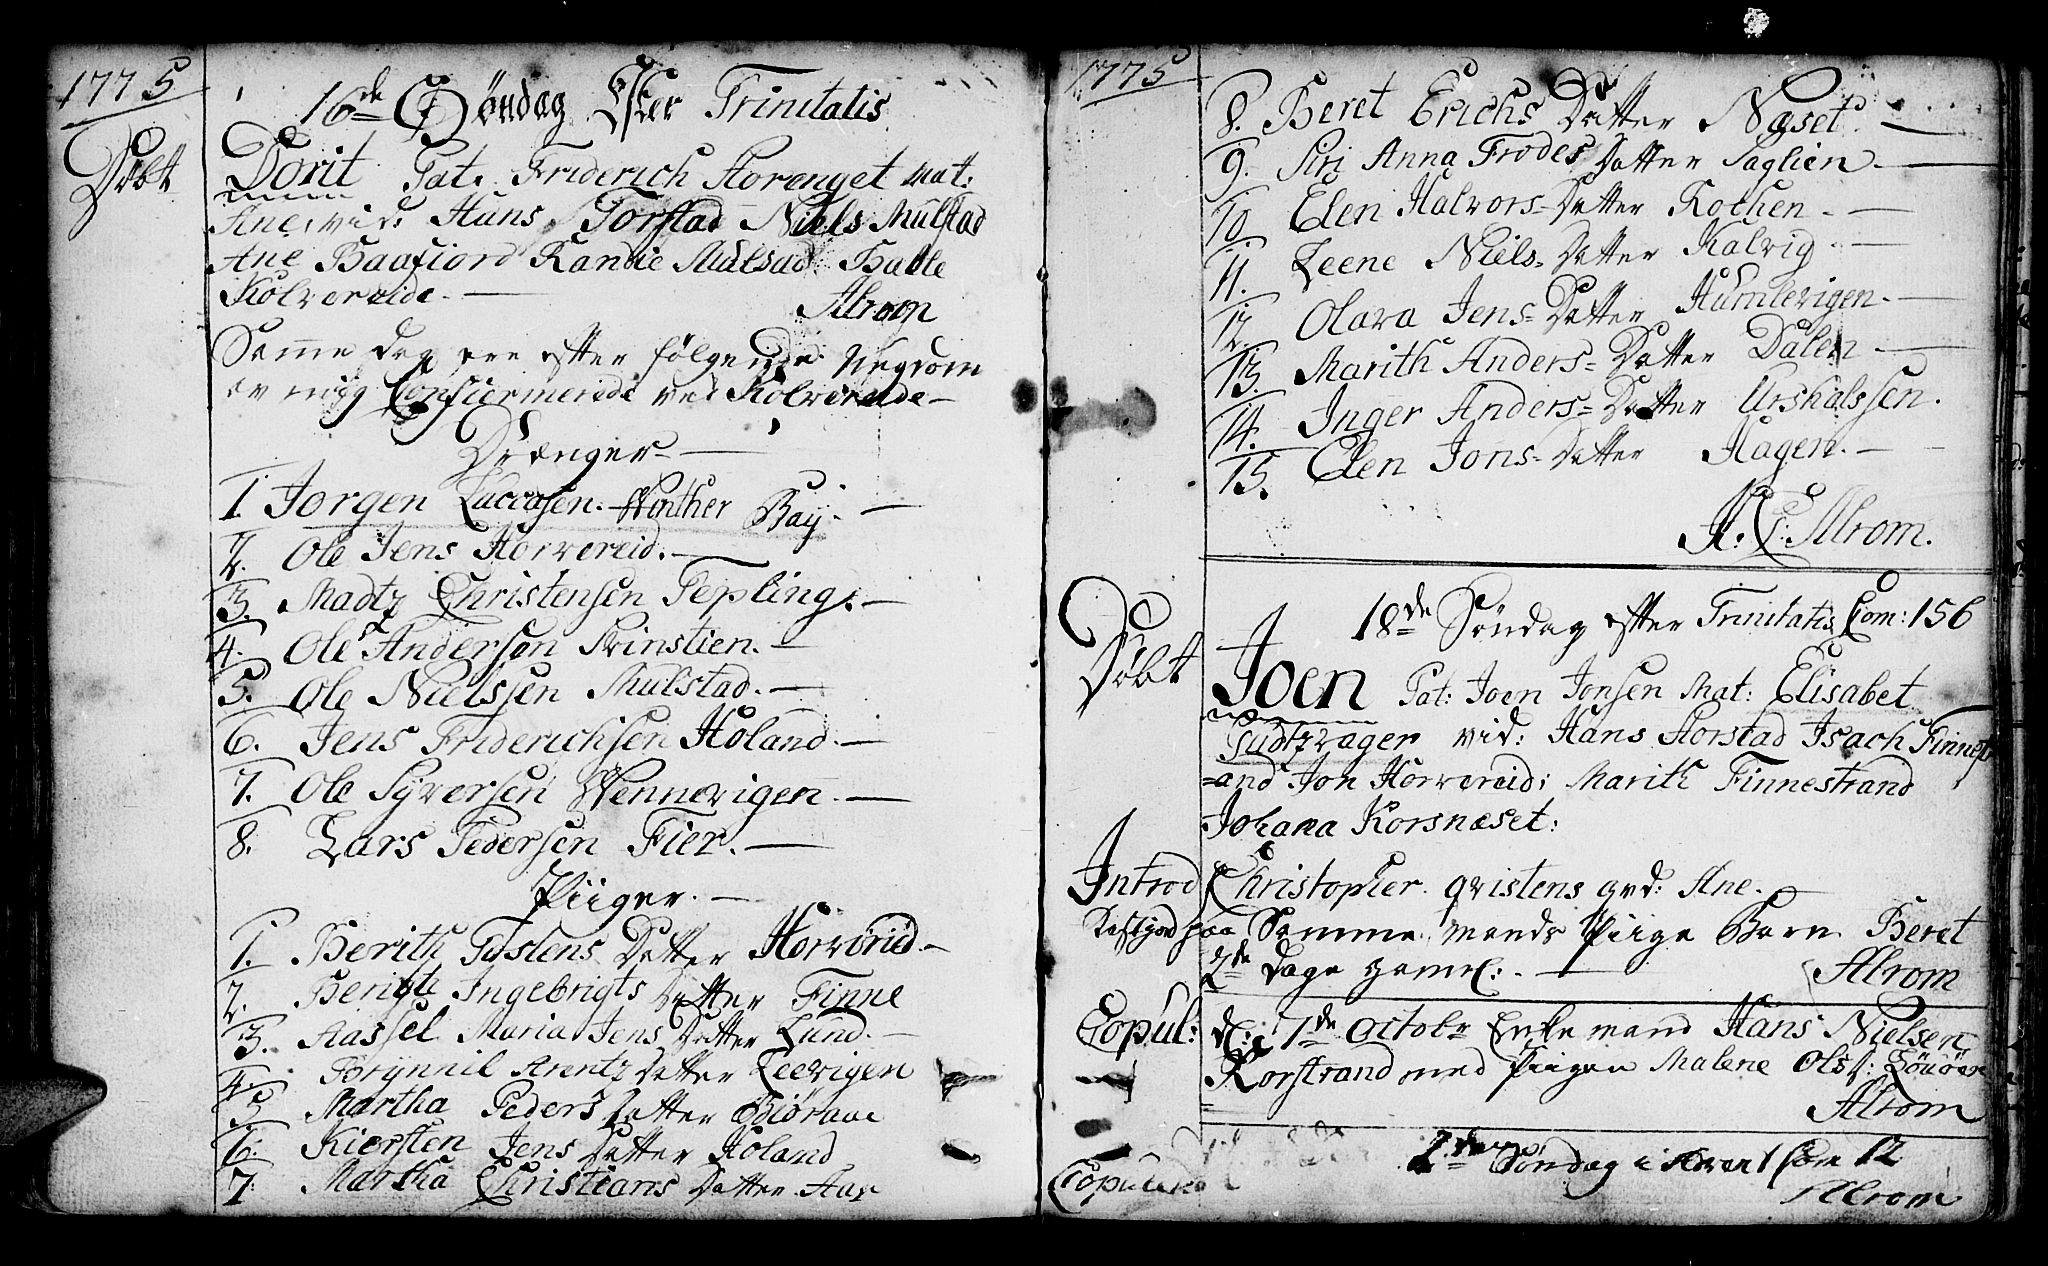 1775
16de Söndag Efter Trinitatis
Döbt
Dorit Pat: Friderich Storenget Mat:
Ane, vid: Hans Torstad Niels Mulstad
Ane Baafiord Randie Mulstad
Kolvereide. Alrom
Samme Dag ere efter følgende Ungdom
av mig Confiermerede ved Kolvereide
Drænger
1. Jorgen Luccasen Winther Bay.
2. Ole Jens Horvereid.
3. Madtz Christensen Tepling.
4. Ole Andersøn Svinstien.
5. Ole Nielssen Mulstad.
6. Jens Friderichsen Høland.
7. Ole Syversen Wennevigen.
8. Lars Pedersen Fier.
Piiger.
1. Berith Tostens Datter Horvereid
2. Berith Ingebrigts Datter Finne
3. Aassel Maria Jens Datter Lund.
4. Brynnil Arentz Datter Leevigen
5. Martha Peders Datter Biöraae
6. Kiersten Jens Datter Høland
7. Martha Christians Datter Aae
1775
8. Beret Erichs Datter Næset.
9. Siri Anna Frodes Datter Saglien.
10. Elen Halvors Datter Rochen.
11. Leene Niels Datter Kalvig.
12. Olava Jens Datter Humlevigen.
13. Marith Anders Datter Dalen
14. Inger Anders Datter Urshalssen.
15. Elen Jons Datter Hagen.
Alrom.
18de Söndag efter Trinitatis Com: 156
Döbt
Joen Pat: Joen Jonsen Mat: Elisabet
vid: Hans Storstad Isach Finnestr
and Jon Horvereid; Marith Finnestrand
Johana Korsnæset:
Introd Christopher qvistens qvd: Ane.
Samme mands Piige Barn Beret
2de Dage gamel:
Alrom
Copul: d: 7de Octobr Enkemand Hans Nielsen
Korstrand med Piigen Malene Olsd:
Alrom
2den Söndag i Advent Com 12
Alrom